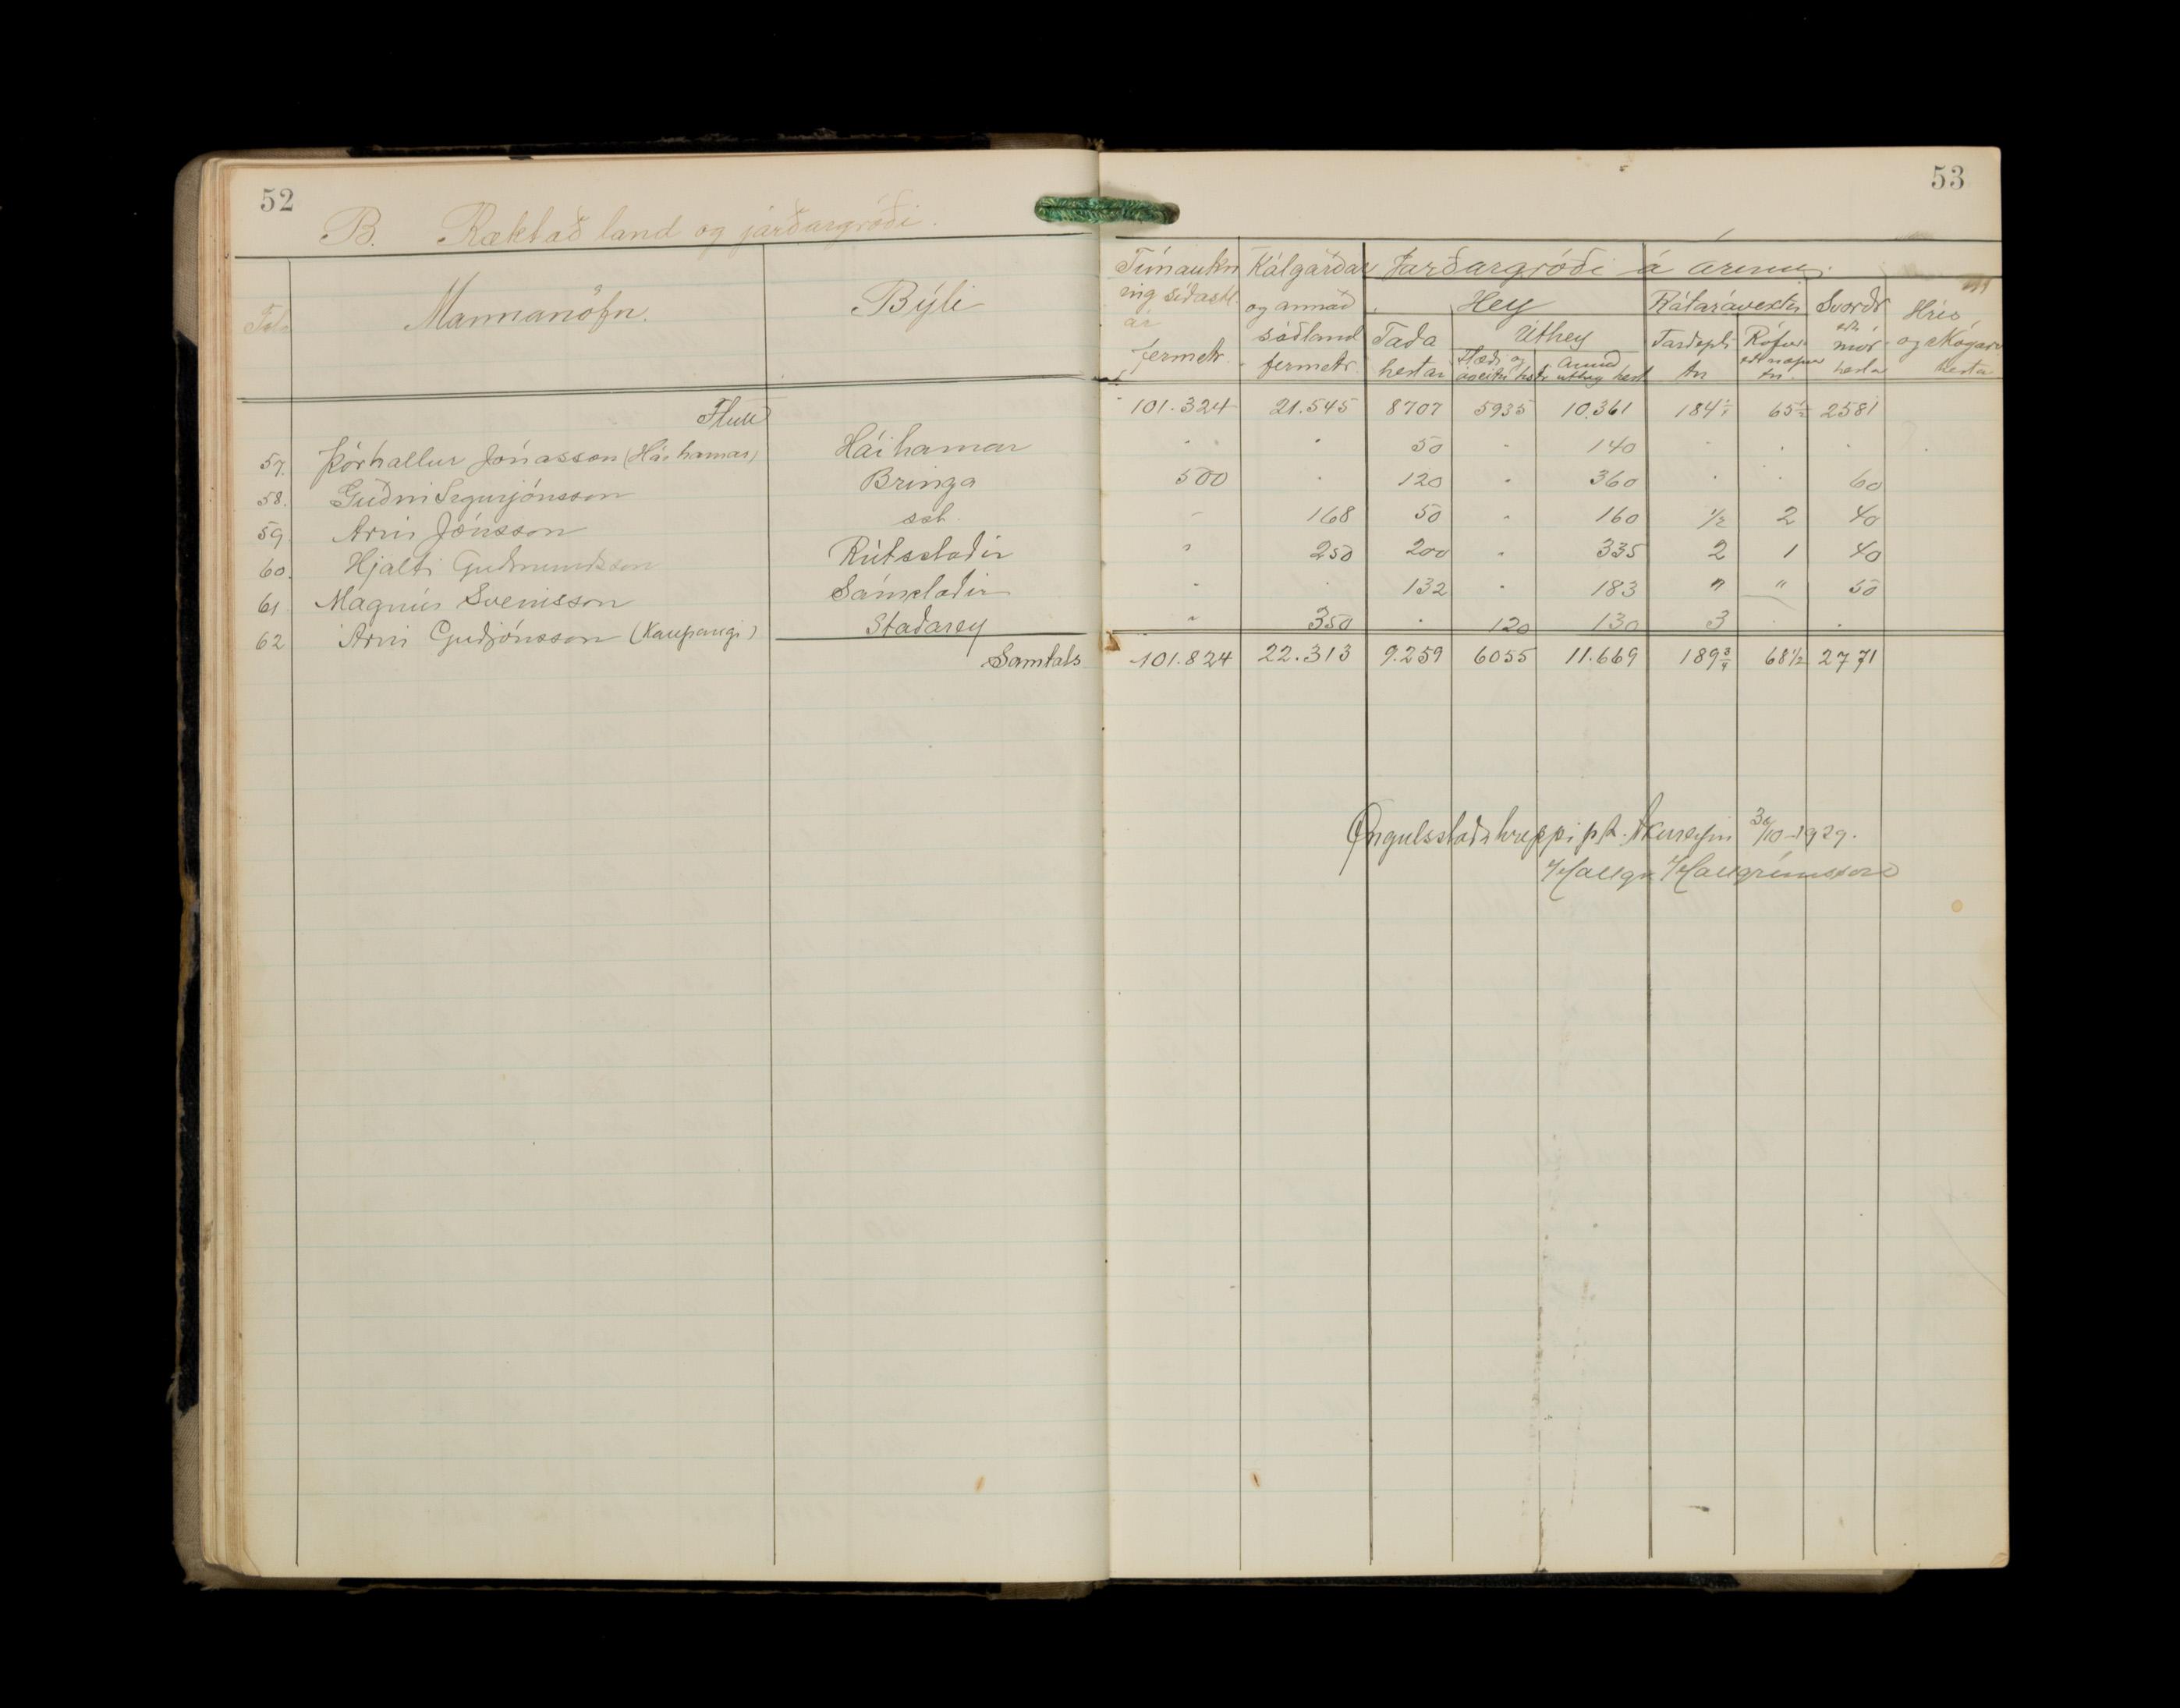 52
53
B. Ræktað land og jarðargróði.
Tala
Mannanöfn.
Býli
Túnaukn
ing síðastl.
ár
fermetr.
Kálgarðar
og annað
sáðland
fermetr.
Jarðargróði á árinu.
Hey
Taða
hestar
Úthey
Flæði og
áveitu hestr
annað
úthey hest
Rótarávextir
Jarðepli
tn
Rófur
eða næpur
tn.
Svörðr
eða
mór
hesta
Hrís
og Mógarv
hesta
Flutt 101.324 21.545 8707 5935 10.361 184¼ 65½ 2581
57. Þórhallur Jónasson (Háihamar) Háihamar " " 50 " 140 " " "
58. Guðni Sigurjónsson Bringa 500 " 120 " 360 " " 60
59. Árni Jónsson ssk. " 168 50 " 160 ½ 2 40
60. Hjalti Guðmundsson Rútsstaðir " 250 200 " 335 2 1 40
61 Magnús Sveinsson Sámsstaðir " " 132 " 183 " " 50
62 Árni Guðjónsson (Kaupangi) Staðarey " 350 " 120 130 3 " "
Samtals 101.824 22.313 9.259 6055 11.669 189¾ 68½ 2771
Öngulsstaðahreppi p.t. Akureyri 30/10-1929.
Hallgr. Hallgrímsson